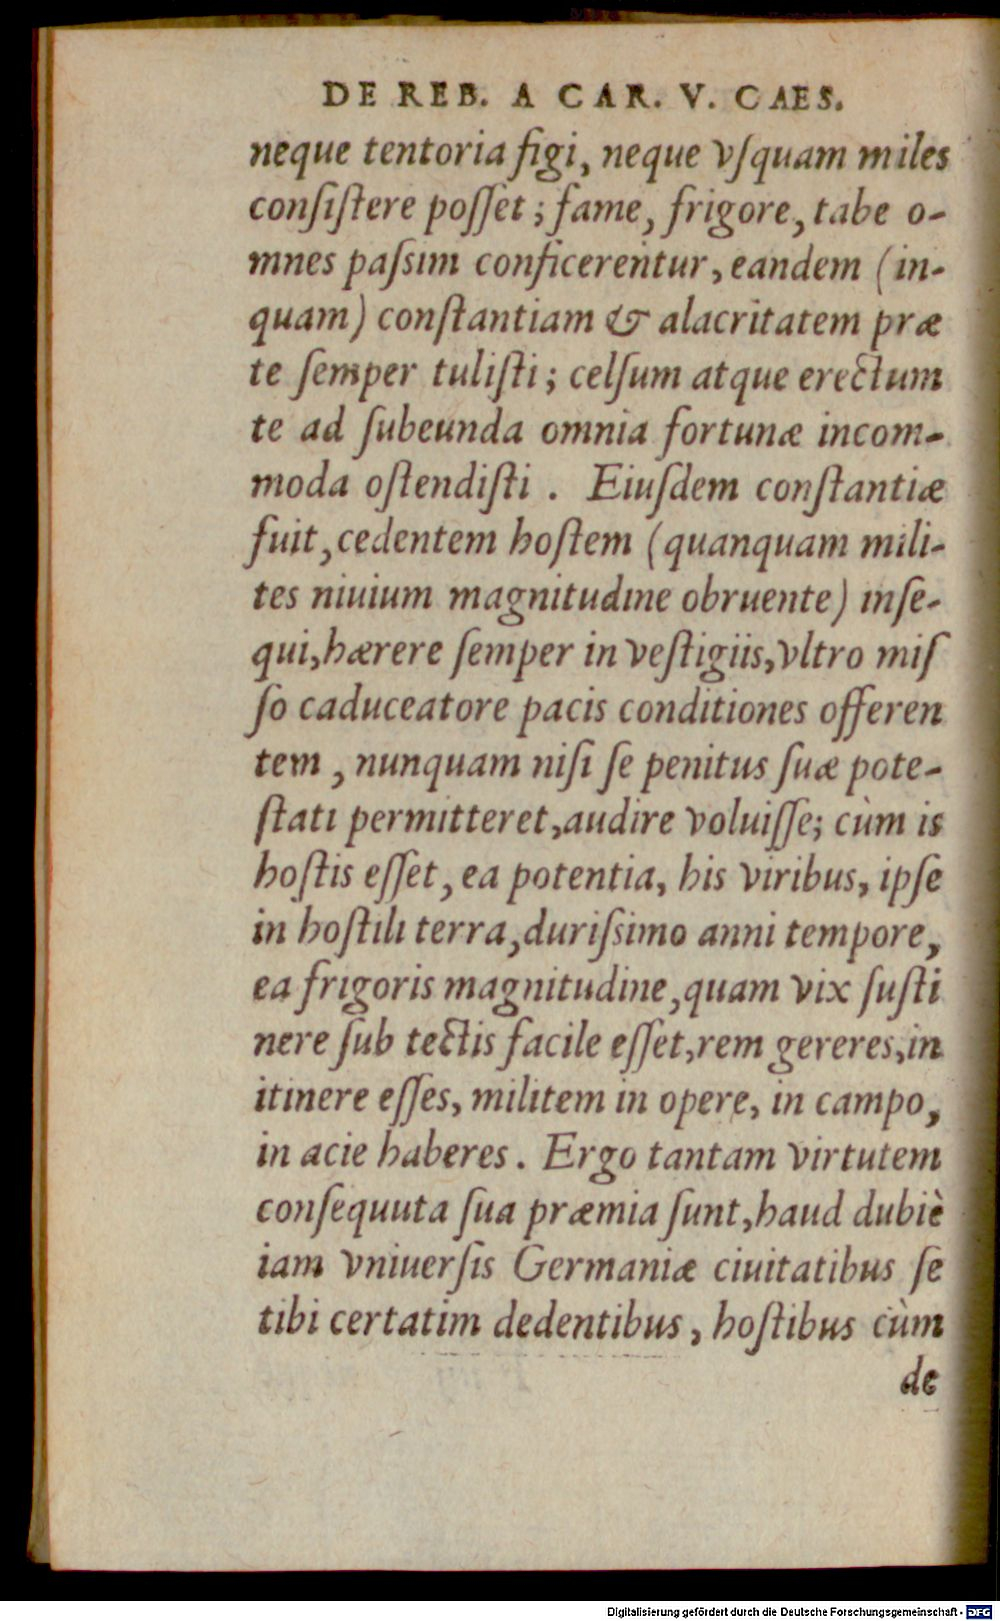 DE REB. A CAR. V. CAES.
neque tentoria figi, neque vſquam miles
conſiſtere poſſet; fame, frigore, tabe o-
mnes paſsim conficerentur, eandem (in-
quam) conſtantiam & alacritatem præ
te ſemper tuliſti; celſum atque erectum
te ad ſubeunda omnia fortunæ incom-
moda oſtendiſti. Eiuſdem conſtantiæ
fuit, cedentem hoſtem (quanquam mili-
tes niuium magnitudine obruente) inſe-
qui, hærere ſemper in veſtigiis, vltro miſ
ſo caduceatore pacis conditiones offeren
tem, nunquam niſi ſe penitus ſuæ pote-
ſtati permitteret, audire voluiſſe; cùm is
hoſtis eſſet, ea potentia, his viribus, ipſe
in hoſtili terra, duriſsimo anni tempore,
ea frigoris magnitudine, quam vix ſuſti
nere ſub tectis facile eſſet, rem gereres, in
itinere eſſes, militem in opere, in campo,
in acie haberes. Ergo tantam virtutem
conſequuta ſua præmia ſunt, haud dubiè
iam vniuerſis Germaniæ ciuitatibus ſe
tibi certatim dedentibus, hoſtibus cùm
de
Digitalisierung gefördert durch die Deutsche Forschungsgemeinschaft - DFG